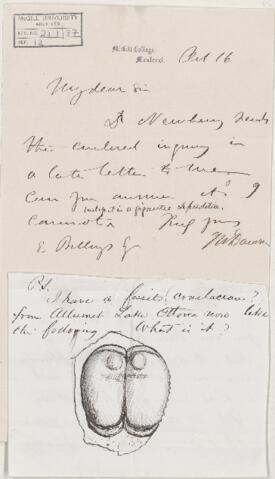 McGILL UNIVERSITY
ARCHIVES
ACC. NO.
REF.
McGill College,
Montreal. Oct 16
My dear Sir
Dr Newberry sends
the enclosed inquiry in
a late letter to me
Can you answer it? I
unless it is a gigantic
cannot. Truly yours
E. Billings Esq JW Dawson
P.S.
I have a fossil (crustacean?)
from Allumet Lake Ottawa river like
the following What is it?